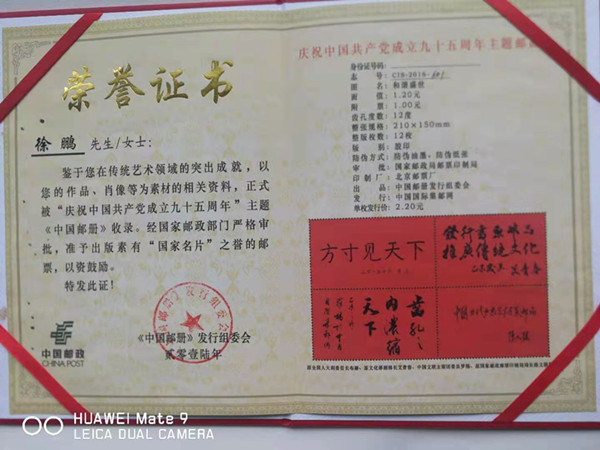 荣誉证书
徐鹏 先生/女士:
鉴于您在传统艺术领域的突出成就，以
您的作品、肖像等为素材的相关资料，正式
被“庆祝中国共产党成立九十五周年”主题
《中国邮册》收录。经国家邮政部门严格审
批，准予出版素有“国家名片”之誉的邮
票，以资鼓励。
特发此证！
中国邮政
CHINA POST
《中国邮册》发行组委会
贰零壹陆年
庆祝中国共产党成立九十五周年主题邮
身份证号码:
志号: CIS-2015-
图名: 和谐盛世
面值: 1.20元
附票: 1.00元
齿孔度数: 12度
整张规格: 210×150mm
整版枚数: 12枚
版别: 胶印
防伪方式: 防伪油墨、防伪纸张
审批: 国家邮政局邮票印制局
印制厂: 北京邮票厂
出品: 中国邮册发行组委会
发行: 中国国际集邮网
单枚发行价: 2.20元
方寸见天下
齿孔之
内浓缩
天下
HUAWEI Mate 9
LEICA DUAL CAMERA